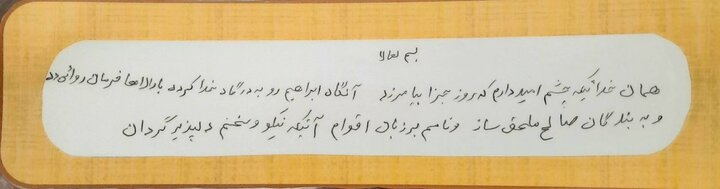 بسم تعالا
همان خدائیکه چشم امید دارم که روز جزا بیامرزد آنگاه ابراهیم رو به درگاه خدا کرده بارالاها فرمان روائی ده
و به بندگان صالح ملحق ساز و نامم بر زبان اقوام آتیکه نیکو و سخنم دلپذیر گردان